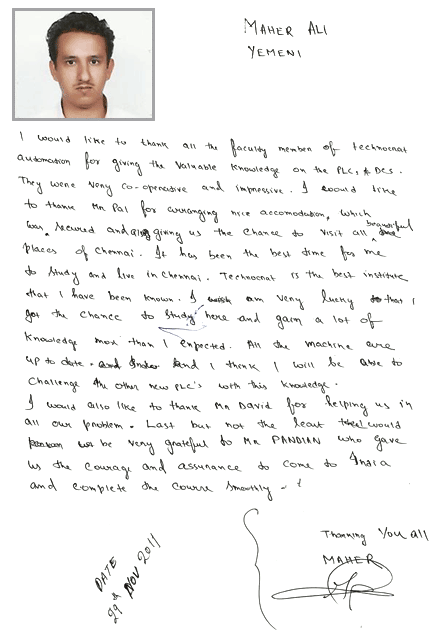 MAHER ALI
YEMENI
I would like to thank all the faculty member of technocrat
automation for giving the valuable knowledge on the PLC, & DCS.
They were very co-operative and impressive. I would like
to thank Mr Pal for arranging nice accomodation, which
was secured and also giving us the chance to visit all beautiful
places of Chennai. It has been the best time for me
to study and live in Chennai. Technocrat is the best institute
that I have been known. I am very lucky that I
got the chance to study here and gain a lot of
knowledge more than I expected. All the machine are
up to date. and I think I will be able to
challenge the other new PLC's with this knowledge.
I would also like to thank Mr David for helping us in
all our problem. Last but not the least I would
be very grateful to Mr PANDIAN who gave
us the courage and assurance to come to India
and complete the course smoothly -
Thanking You all
MAHER
DATE
29 NOV 2011